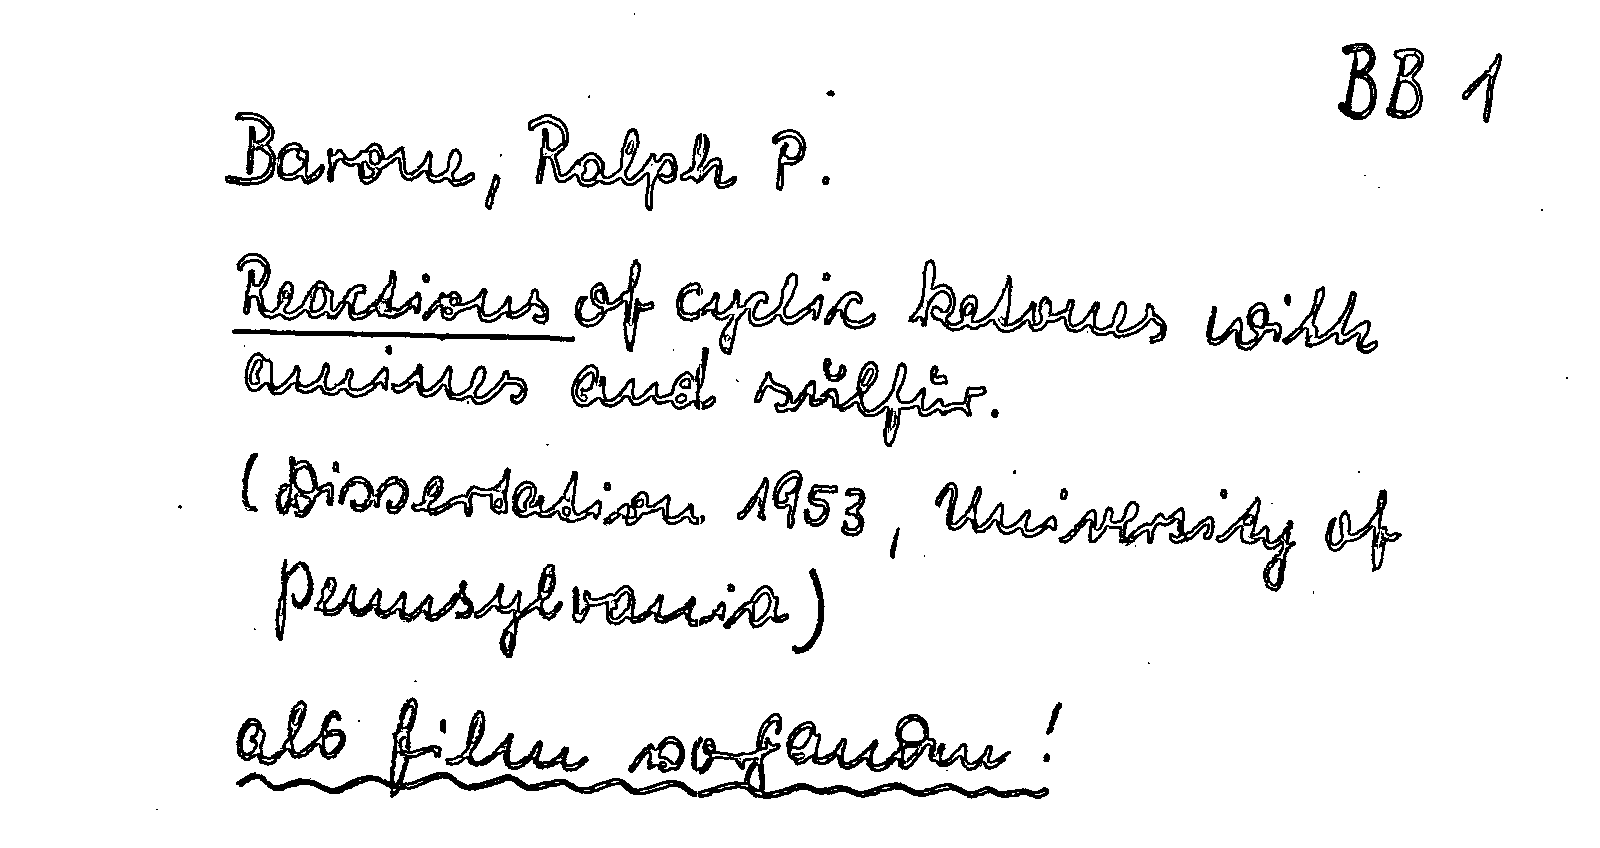 BB 1
Barone, Ralph P.
Reactions of cyclic ketones with
amines and sulfur.
(Dissertation 1953, University of
Pennsylvania)
als Film vorhanden!